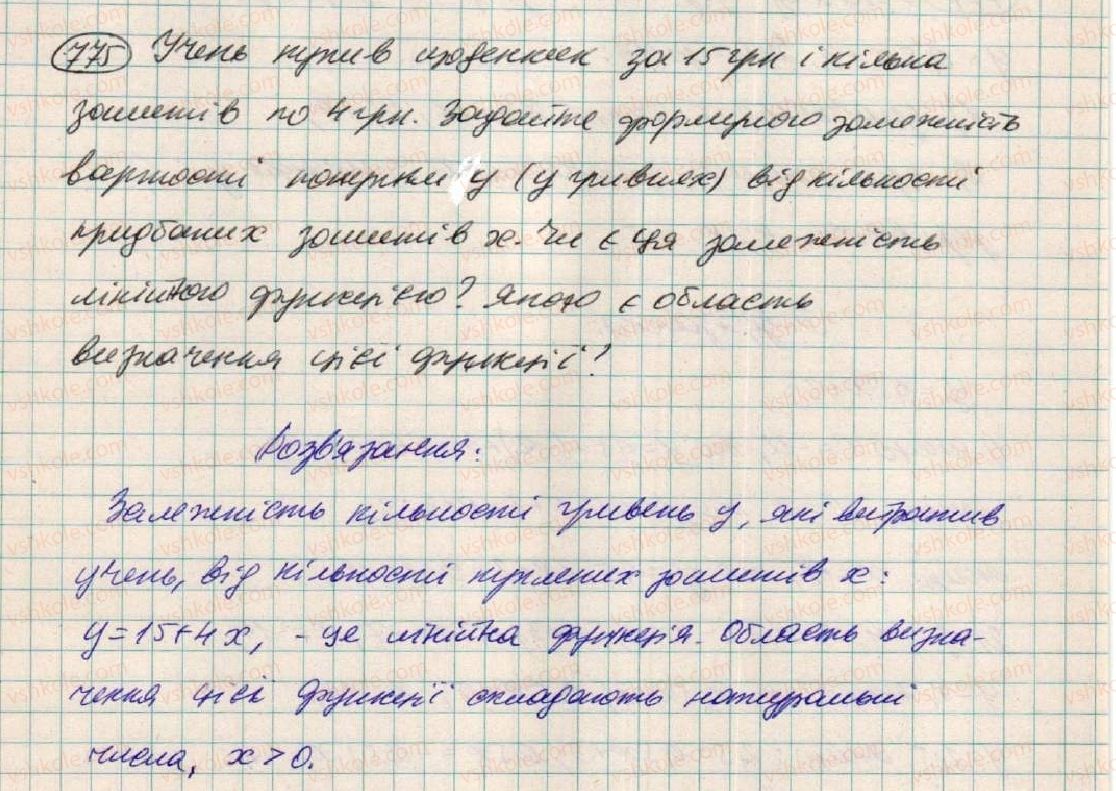 775 Учень купив щоденник за 15 грн і кілька
зошитів по 4 грн. Задайте формулою залежність
вартості покупки y (у гривнях) від кількості
придбаних зошитів x. Чи є ця залежність
лінійною функцією? Якою є область
визначення цієї функції?
Розв'язання:
Залежність кількості гривень y, які витратив
учень, від кількості куплених зошитів x:
y=15+4x, - це лінійна функція. Область визна-
чення цієї функції складають натуральні
числа, x > 0.